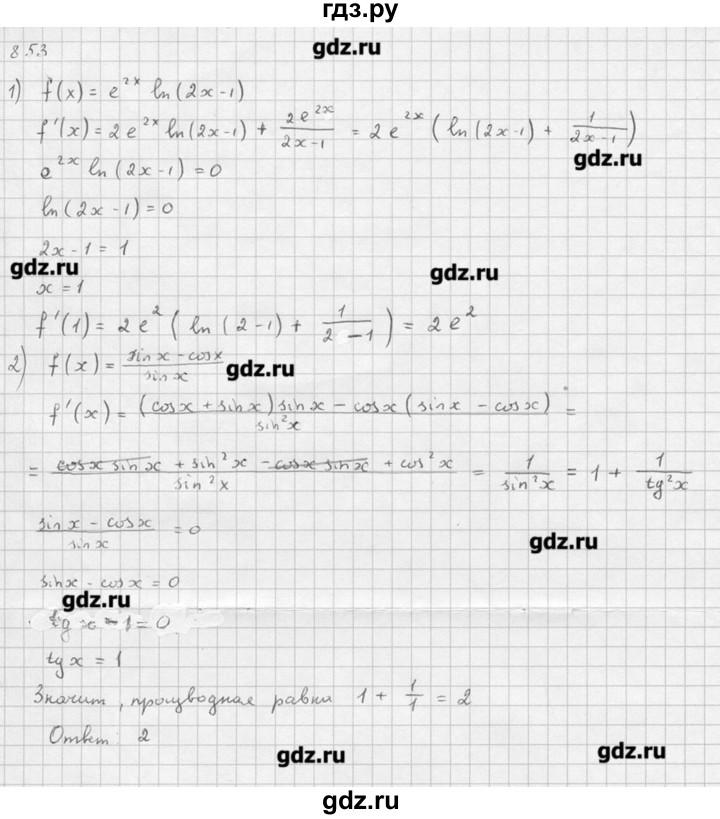 гдз.ру
8.53
gdz.ru
1) f(x) = e^{2x} ln(2x-1)
f'(x) = 2e^{2x} ln(2x-1) + \frac{2e^{2x}}{2x-1} = 2e^{2x} ( ln(2x-1) + \frac{1}{2x-1} )
gdz.ru
e^{2x} ln(2x-1) = 0
ln(2x-1) = 0
2x-1 = 1
gdz.ru gdz.ru
x = 1
f'(1) = 2e^2 ( ln (2-1) + \frac{1}{2-1} ) = 2e^2
2) f(x) = \frac{sin x - cos x}{sin x}
gdz.ru
f'(x) = \frac{(cos x + sin x) sin x - cos x (sin x - cos x)}{sin^2 x} =
= \frac{cos x sin x + sin^2 x - cos x sin x + cos^2 x}{sin^2 x} = \frac{1}{sin^2 x} = 1 + \frac{1}{tg^2 x}
\frac{sin x - cos x}{sin x} = 0
gdz.ru
sin x - cos x = 0
gdz.ru
tg x - 1 = 0
tg x = 1
Значит, производная равна 1 + \frac{1}{1} = 2
Ответ: 2
gdz.ru gdz.ru
gdz.ru